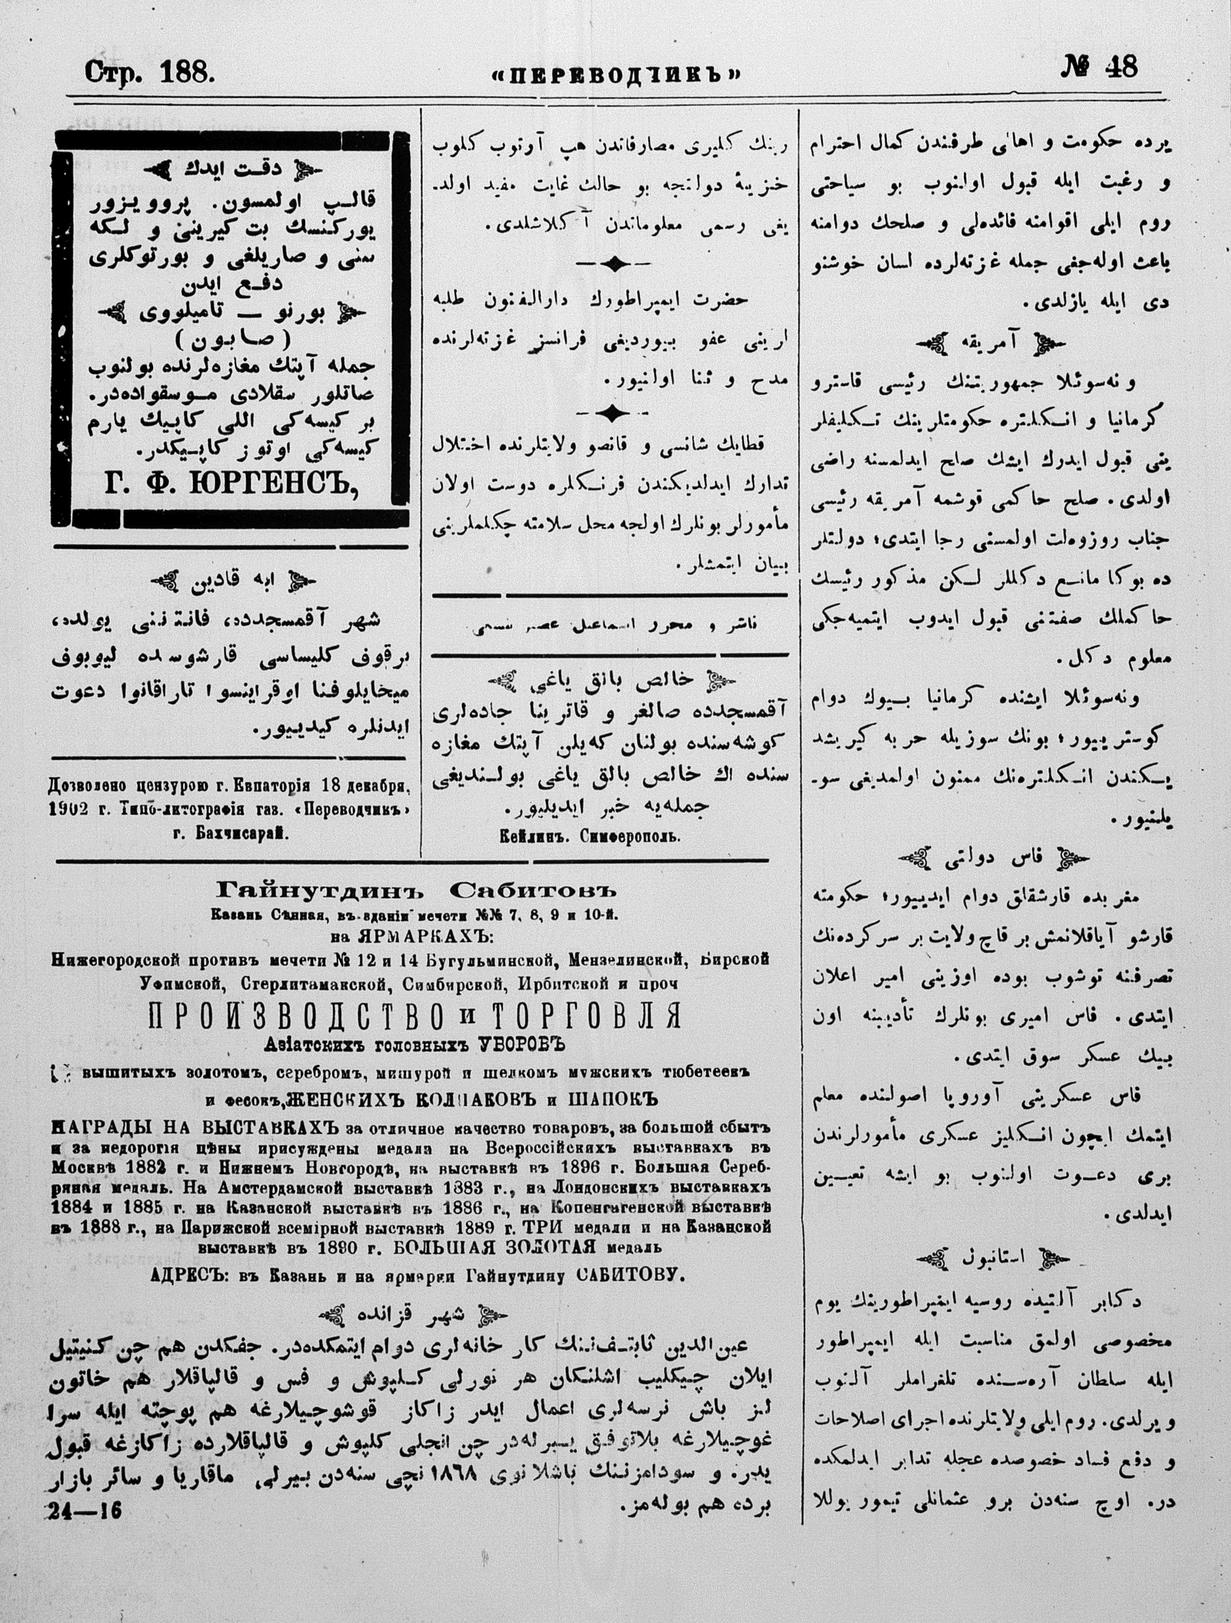 Стр. 188.
«ПЕРЕВОДЧИКЪ»
№ 48
يرده حكومت و اهالی طرفندن كمال احترام
و رغبت ايله قبول اولنوب بو سياحتی
روم ايلی اقوامنه فائده‌لی و صلحك دوامنه
باعث اوله‌جغی جمله غزته‌لرده لسان خوشنو
دی ايله يازلدی.
آمريقه
ونه‌سوئلا جمهوريتنك رئيسی قاسترو
كرمانيا و انكلتره حكومتلرينك تكليفلر
ينی قبول ايدرك ايشك صلح ايدلمسنه راضی
اولدی. صلح حاكمی قوشمه آمريقه رئيسی
جناب روزوه‌لت اولمسنی رجا ايتدی؛ دولتلر
ده بوكا مانع دكللر لكن مذكور رئيسك
حاكملك صفتنی قبول ايدوب ايتميه‌جكی
معلوم دكل.
ونه‌سوئلا ايشنده كرمانيا بيوك دوام
كوسترييور؛ بونك سوزيله حربه كيريشد
يكندن انكلتره‌نك ممنون اولمديغی سو-
يلنيور.
فاس دولتی
مغربده قارشقلق دوام ايدييور؛ حكومته
قارشو آياقلانمش بر قاچ ولايت بر سركرده‌نك
تصرفنه توشوب بوده اوزينی امير اعلان
ايتدی. فاس اميری بونلرك تأديبنه اون
بيك عسكر سوق ايتدی.
فاس عسكرينی آوروپا اصولنده معلم
ايتمك ايچون انكليز عسكری مأمورلرندن
بری دعوت اولنوب بو ايشه تعيين
ايدلدی.
استانبول
دكابر آلتيده روسيه ايمپراطورينك يوم
مخصوصی اولمق مناسبت ايله ايمپراطور
ايله سلطان آره‌سنده تلغراملر آلنوب
ويرلدی. روم ايلی ولايتلرنده اجرای اصلاحات
و دفع فساد خصوصده عجله تدابر ايدلمكده
در. اوچ سنه‌دن برو عثمانلی تيمور يوللا
رينك كليری مصارفاتدن هپ آرتوب كلوب
خزينهٔ دولتجه بو حالك غايت مفيد اولد-
يغی رسمی معلوماتدن آكلاشلدی.
حضرت ايمپراطورك دارالفنون طلبه
لرينی عفو بيورديغی فرانسز غزته‌لرنده
مدح و ثنا اولنيور.
قطايك شانسی و قانصو ولايتلرنده اختلال
تدارك ايدلديكندن فرنكلره دوست اولان
مأمورلر بونلرك اولجه محل سلامته چكلملرينی
بيان ايتمشلر.
ناشر و محرر اسماعيل غصپرنسكی
خالص بالق ياغی
آقمسجدده صالغر و قاترينا جاده‌لری
كوشه‌سنده بولنان كه‌يلن آپتك مغازه
سنده اك خالص بالق ياغی بولنديغی
جمله‌يه خبر ايديليور.
Кейлинъ. Симферополь.
دقت ايدك
قالپ اولمسون. پروويزور
يوركنسك بت كيرينی و لكه
سنی و صاريلغی و بورتوكلری
دفع ايدن
بورنو — تاميلووی
(صابون)
جمله آپتك مغازه‌لرنده بولنوب
صاتلور سقلادی موسقواده‌در.
بر كيسه‌كی اللی كاپيك يارم
كيسه‌كی اوتوز كاپيكدر.
Г. Ф. ЮРГЕНСЪ,
ابه قادين
شهر آقمسجدده، فانتننی يولده،
برقوف كليساسی قارشوسده ليوبوف
ميخايلوفنا اوقراينسوا تاراقانوا دعوت
ايدنلره كيدييور.
Дозволено цензурою г. Евпаторія 18 декабря,
1902 г. Типо-литографія газ. «Переводчикъ»
г. Бахчисарай.
Гайнутдинъ Сабитовъ
Казань Сѣнная, въ зданіи мечети №№ 7, 8, 9 и 10-й.
на ЯРМАРКАХЪ:
Нижегородской противъ мечети № 12 и 14 Бугульминской, Мензелинской, Бирской
Уфимской, Стерлитамакской, Симбирской, Ирбитской и проч
ПРОИЗВОДСТВО и ТОРГОВЛЯ
Азіатскихъ головныхъ УБОРОВЪ
вышитыхъ золотомъ, серебромъ, мишурой и шелкомъ мужскихъ тюбетеекъ
и фесокъ, ЖЕНСКИХЪ КОЛПАКОВЪ и ШАПОКЪ
НАГРАДЫ НА ВЫСТАВКАХЪ за отличное качество товаровъ, за большой сбытъ
и за недорогія цѣны присуждены медали на Всероссійскихъ выставкахъ въ
Москвѣ 1882 г. и Нижнемъ Новгородѣ, на выставкѣ въ 1896 г. Большая Сереб-
ряная медаль. На Амстердамской выставкѣ 1883 г., на Лондонскихъ выставкахъ
1884 и 1885 г. на Казанской выставкѣ въ 1886 г., на Копенгагенской выставкѣ
въ 1888 г., на Парижской всемірной выставкѣ 1889 г. ТРИ медали и на Казанской
выставкѣ въ 1890 г. БОЛЬШАЯ ЗОЛОТАЯ медаль
АДРЕСЪ: въ Казань и на ярмарки Гайнутдину САБИТОВУ.
شهر قزانده
عين‌الدين ثابتفننك كار خانه‌لری دوام ايتمكده‌در. جفكدن هم چن كنيتيل
ايلان چيكليب اشلنكان هر نورلی كلپوش و فس و قالپاقلار هم خاتون
لز باش نرسه‌لری اعمال ايدر زاكاز قوشوچيلارغه هم پوچته ايله سرا
غوچيلارغه بلاتوفق يبرله‌در چن انجلی كلپوش و قالپاقلارده زاكازغه قبول
يدر. و سودامزننك باشلانوی ١٨٦٨ نچی سنه‌دن بيرلی ماقاريا و سائر بازار
برده هم بوله‌مز.
24—16